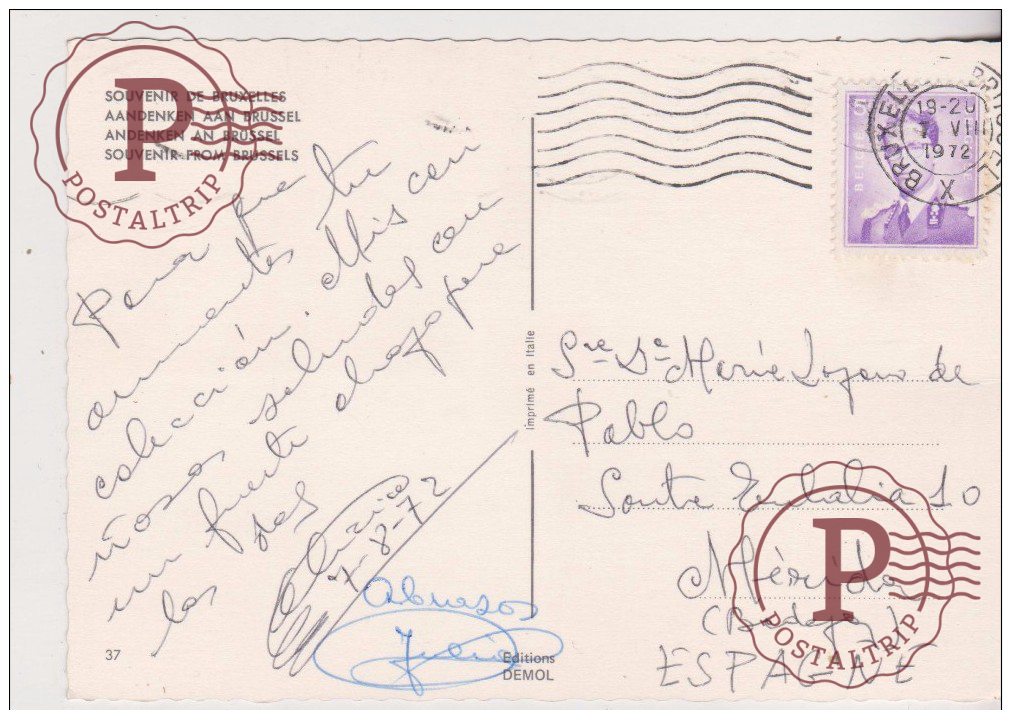 SOUVENIR DE BRUXELLES
AANDENKEN AAN BRUSSEL
ANDENKEN AN BRUSSEL
SOUVENIR FROM BRUSSELS
P
POSTALTRIP
Para que tu
aumentes
colección. Mis cari
ñosos saludos con
un fuerte abrazo para
los
7-8-72
Abrazos
Julio
37
Editions
DEMOL
imprimé en Italie
BRUXELLES X BRUSSEL
19-20
VIII
1972
5F
BELG
Sra Da María Lozano de
Pablo
Santa Eulalia 10
Mérida
(Badajoz)
ESPAGNE
P
POSTALTRIP